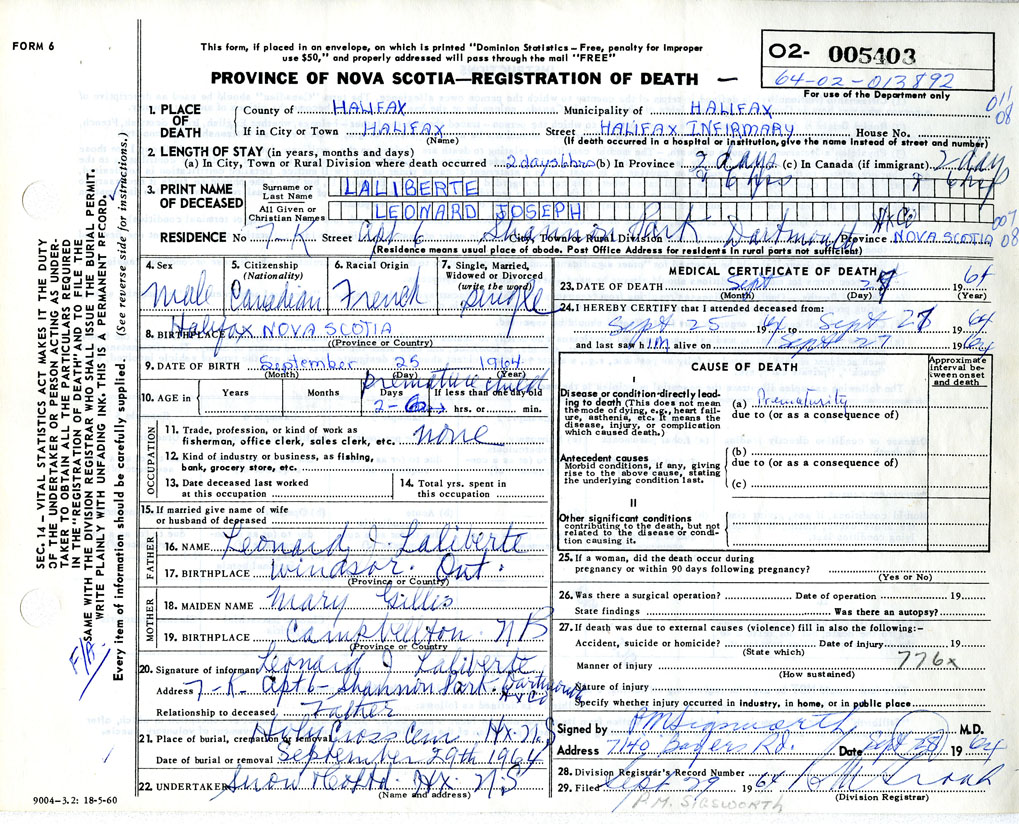 FORM 6
This form, if placed in an envelope, on which is printed "Dominion Statistics – Free, penalty for improper
use $50," and properly addressed will pass through the mail "FREE"
PROVINCE OF NOVA SCOTIA—REGISTRATION OF DEATH —
02- 005403
64-02-013892
For use of the Department only
011
08
SEC. 14 – VITAL STATISTICS ACT MAKES IT THE DUTY
OF THE UNDERTAKER OR PERSON ACTING AS UNDER-
TAKER TO OBTAIN ALL THE PARTICULARS REQUIRED
IN THE "REGISTRATION OF DEATH" AND TO FILE THE
SAME WITH THE DIVISION REGISTRAR WHO SHALL ISSUE THE BURIAL PERMIT.
WRITE PLAINLY WITH UNFADING INK. THIS IS A PERMANENT RECORD.
Every item of information should be carefully supplied. (See reverse side for instructions.)
1. PLACE OF DEATH County of HALIFAX Municipality of HALIFAX
If in City or Town HALIFAX (Name) Street HALIFAX INFIRMARY House No.
(If death occurred in a hospital or institution, give the name instead of street and number)
2. LENGTH OF STAY (in years, months and days)
(a) In City, Town or Rural Division where death occurred 2 days 6 hrs (b) In Province 2 days 6 hrs (c) In Canada (if immigrant) 2 day 6 hrs
3. PRINT NAME OF DECEASED Surname or Last Name LALIBERTE
All Given or Christian Names LEONARD JOSEPH
007
08
RESIDENCE No 7 K Street Apt 6 City, Town or Rural Division Shannon Park Dartmouth Hx Co Province NOVA SCOTIA
(Residence means usual place of abode. Post Office Address for residents in rural parts not sufficient)
4. Sex Male
5. Citizenship (Nationality) Canadian
6. Racial Origin French
7. Single, Married, Widowed or Divorced (write the word) Single
8. BIRTHPLACE Halifax NOVA SCOTIA
(Province or Country)
9. DATE OF BIRTH September 25 1964
(Month) (Day) (Year)
premature child
10. AGE in Years Months Days If less than one day old
2-6 hrs. or min.
OCCUPATION
11. Trade, profession, or kind of work as
fisherman, office clerk, sales clerk, etc. none
12. Kind of industry or business, as fishing,
bank, grocery store, etc.
13. Date deceased last worked
at this occupation
14. Total yrs. spent in
this occupation
15. If married give name of wife
or husband of deceased
FATHER
16. NAME Leonard J. Laliberte
17. BIRTHPLACE Windsor Ont.
(Province or Country)
MOTHER
18. MAIDEN NAME Mary Gillis
19. BIRTHPLACE Campbellton NB
(Province or Country)
20. Signature of informant Leonard J Laliberte
Address 7-K Apt 6 - Shannon Park - Dartmouth Hx Co
Relationship to deceased Father
21. Place of burial, cremation or removal Holy Cross Cem. Hx. N.S
Date of burial or removal September 29th 1964
22. UNDERTAKER Snow & Co Ltd. Hx. N.S
(Name and address)
9004–3.2: 18-5-60
MEDICAL CERTIFICATE OF DEATH
23. DATE OF DEATH Sept 27 1964
(Month) (Day) (Year)
24. I HEREBY CERTIFY that I attended deceased from:
Sept 25 1964 to Sept 27 1964
and last saw him alive on Sept 27 1964
CAUSE OF DEATH
Approximate interval between onset and death
I
Disease or condition directly leading to death (This does not mean the mode of dying, e.g., heart failure, asthenia, etc. It means the disease, injury, or complication which caused death.)
(a) Prematurity
due to (or as a consequence of)
Antecedent causes
Morbid conditions, if any, giving rise to the above cause, stating the underlying condition last.
(b)
due to (or as a consequence of)
(c)
II
Other significant conditions
contributing to the death, but not related to the disease or condition causing it.
25. If a woman, did the death occur during
pregnancy or within 90 days following pregnancy?
(Yes or No)
26. Was there a surgical operation? Date of operation 19
State findings Was there an autopsy?
27. If death was due to external causes (violence) fill in also the following:-
Accident, suicide or homicide? Date of injury 19
(State which)
776x
Manner of injury
(How sustained)
Nature of injury
Specify whether injury occurred in industry, in home, or in public place.
Signed by P M Sigsworth M.D.
Address 7140 Bayers Rd. Date Sept 28 1964
28. Division Registrar's Record Number
29. Filed Sept 29 1964
(Division Registrar)
P.M. SIGSWORTH